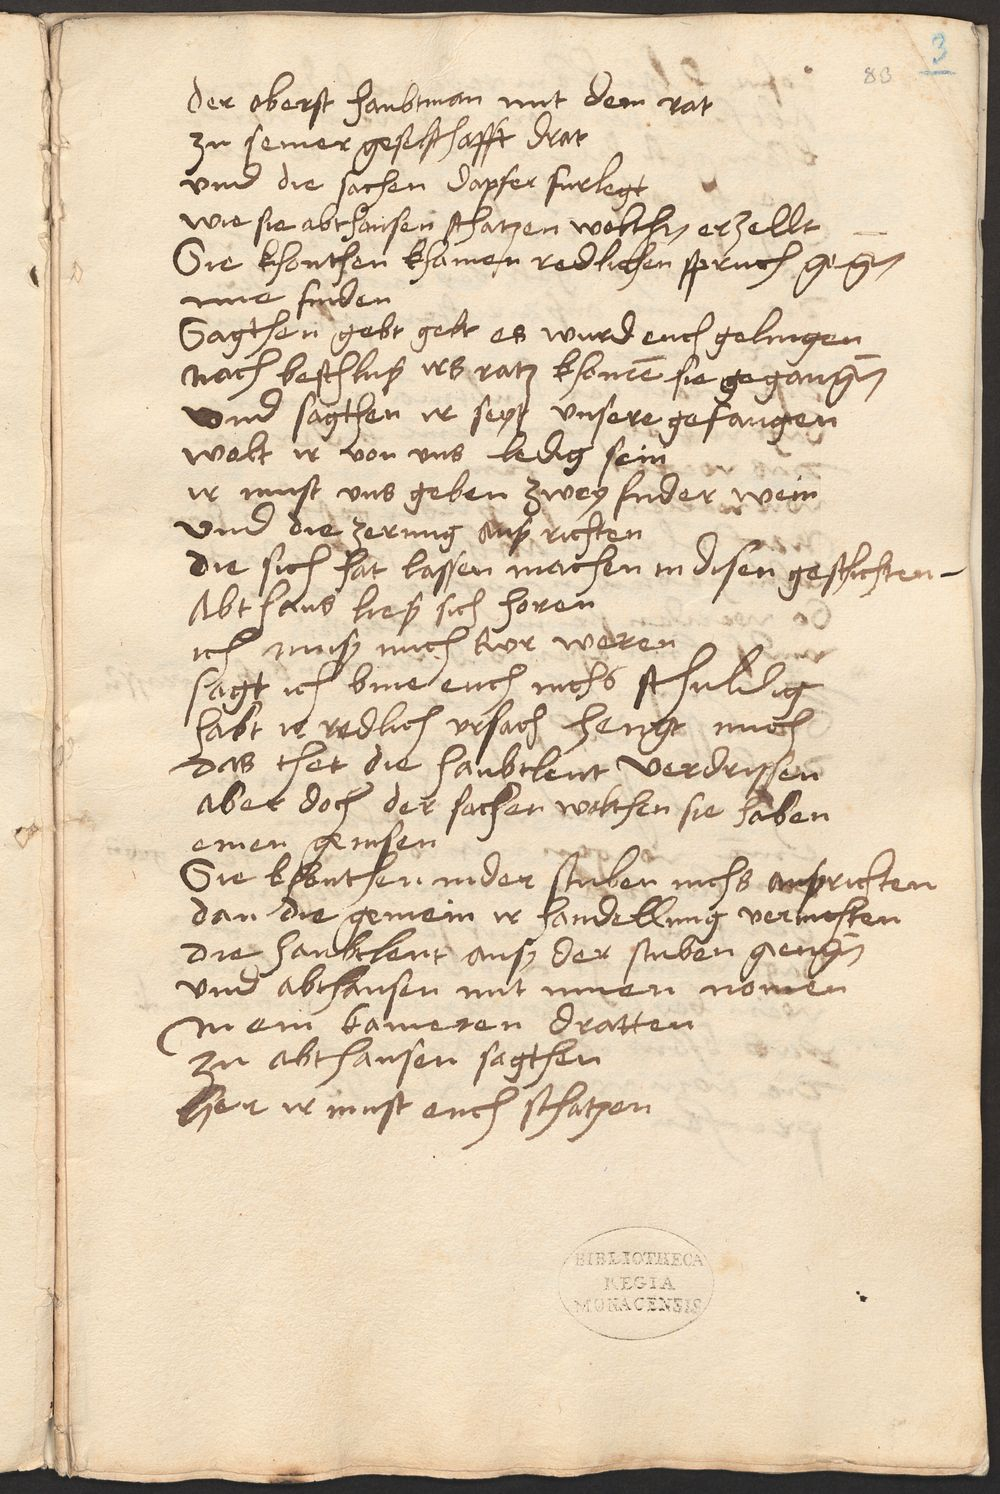 3
83
der oberst haubtman mit dem rat
zu seiner geselschafft drat
vnd die sachen dapfer furlegt
wie sie abt hansen schatzen wolthen erzellt
Sie khonthen khainen redlichen spruch gegen
ime finden
Sagthen gebt gelt es wurd euch gelingen
nach beschlus irs ratz khomē sie gegangen
vnd sagthen ir seyt vnsere gefangen
wolt ir von vns ledig sein
ir must vns geben zwey fuder wein
vnd die zerung aus richten
die sich hat lassen machen in disen geschichten
Abt hans lies sich horen
ich mus mich eur weren
sagt ich bine euch nichs schuldig
habt ir redlich vrsach hengt mich
das thet die haubtleut verdrissen
aber doch der sachen wolthen sie haben
einen genisen
Sie khonthen in der stuben nichs ausrichten
dan die gemein ir handellung vernichten
die haubtleut aus der stuben gengen
vnd abthansen mit innen nomen
in ein kameren dratten
zu abthansen sagthen
her ir must euch schatzen
BIBLIOTHECA
REGIA
MONACENSIS